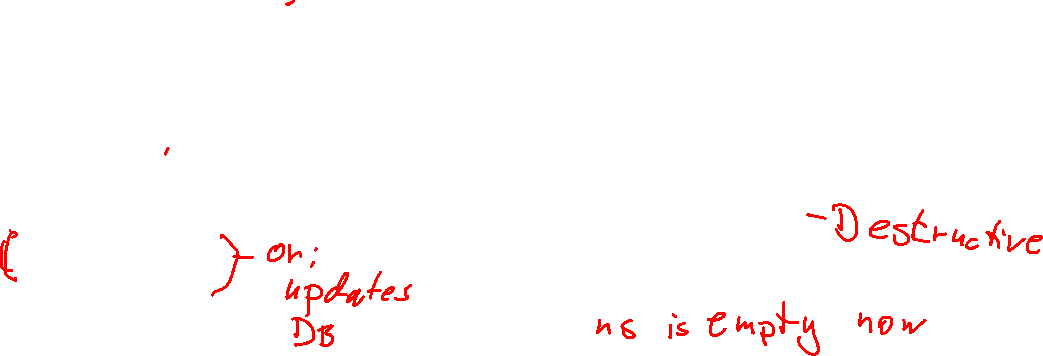 - Destructive
on;
updates
DB
ns is empty now